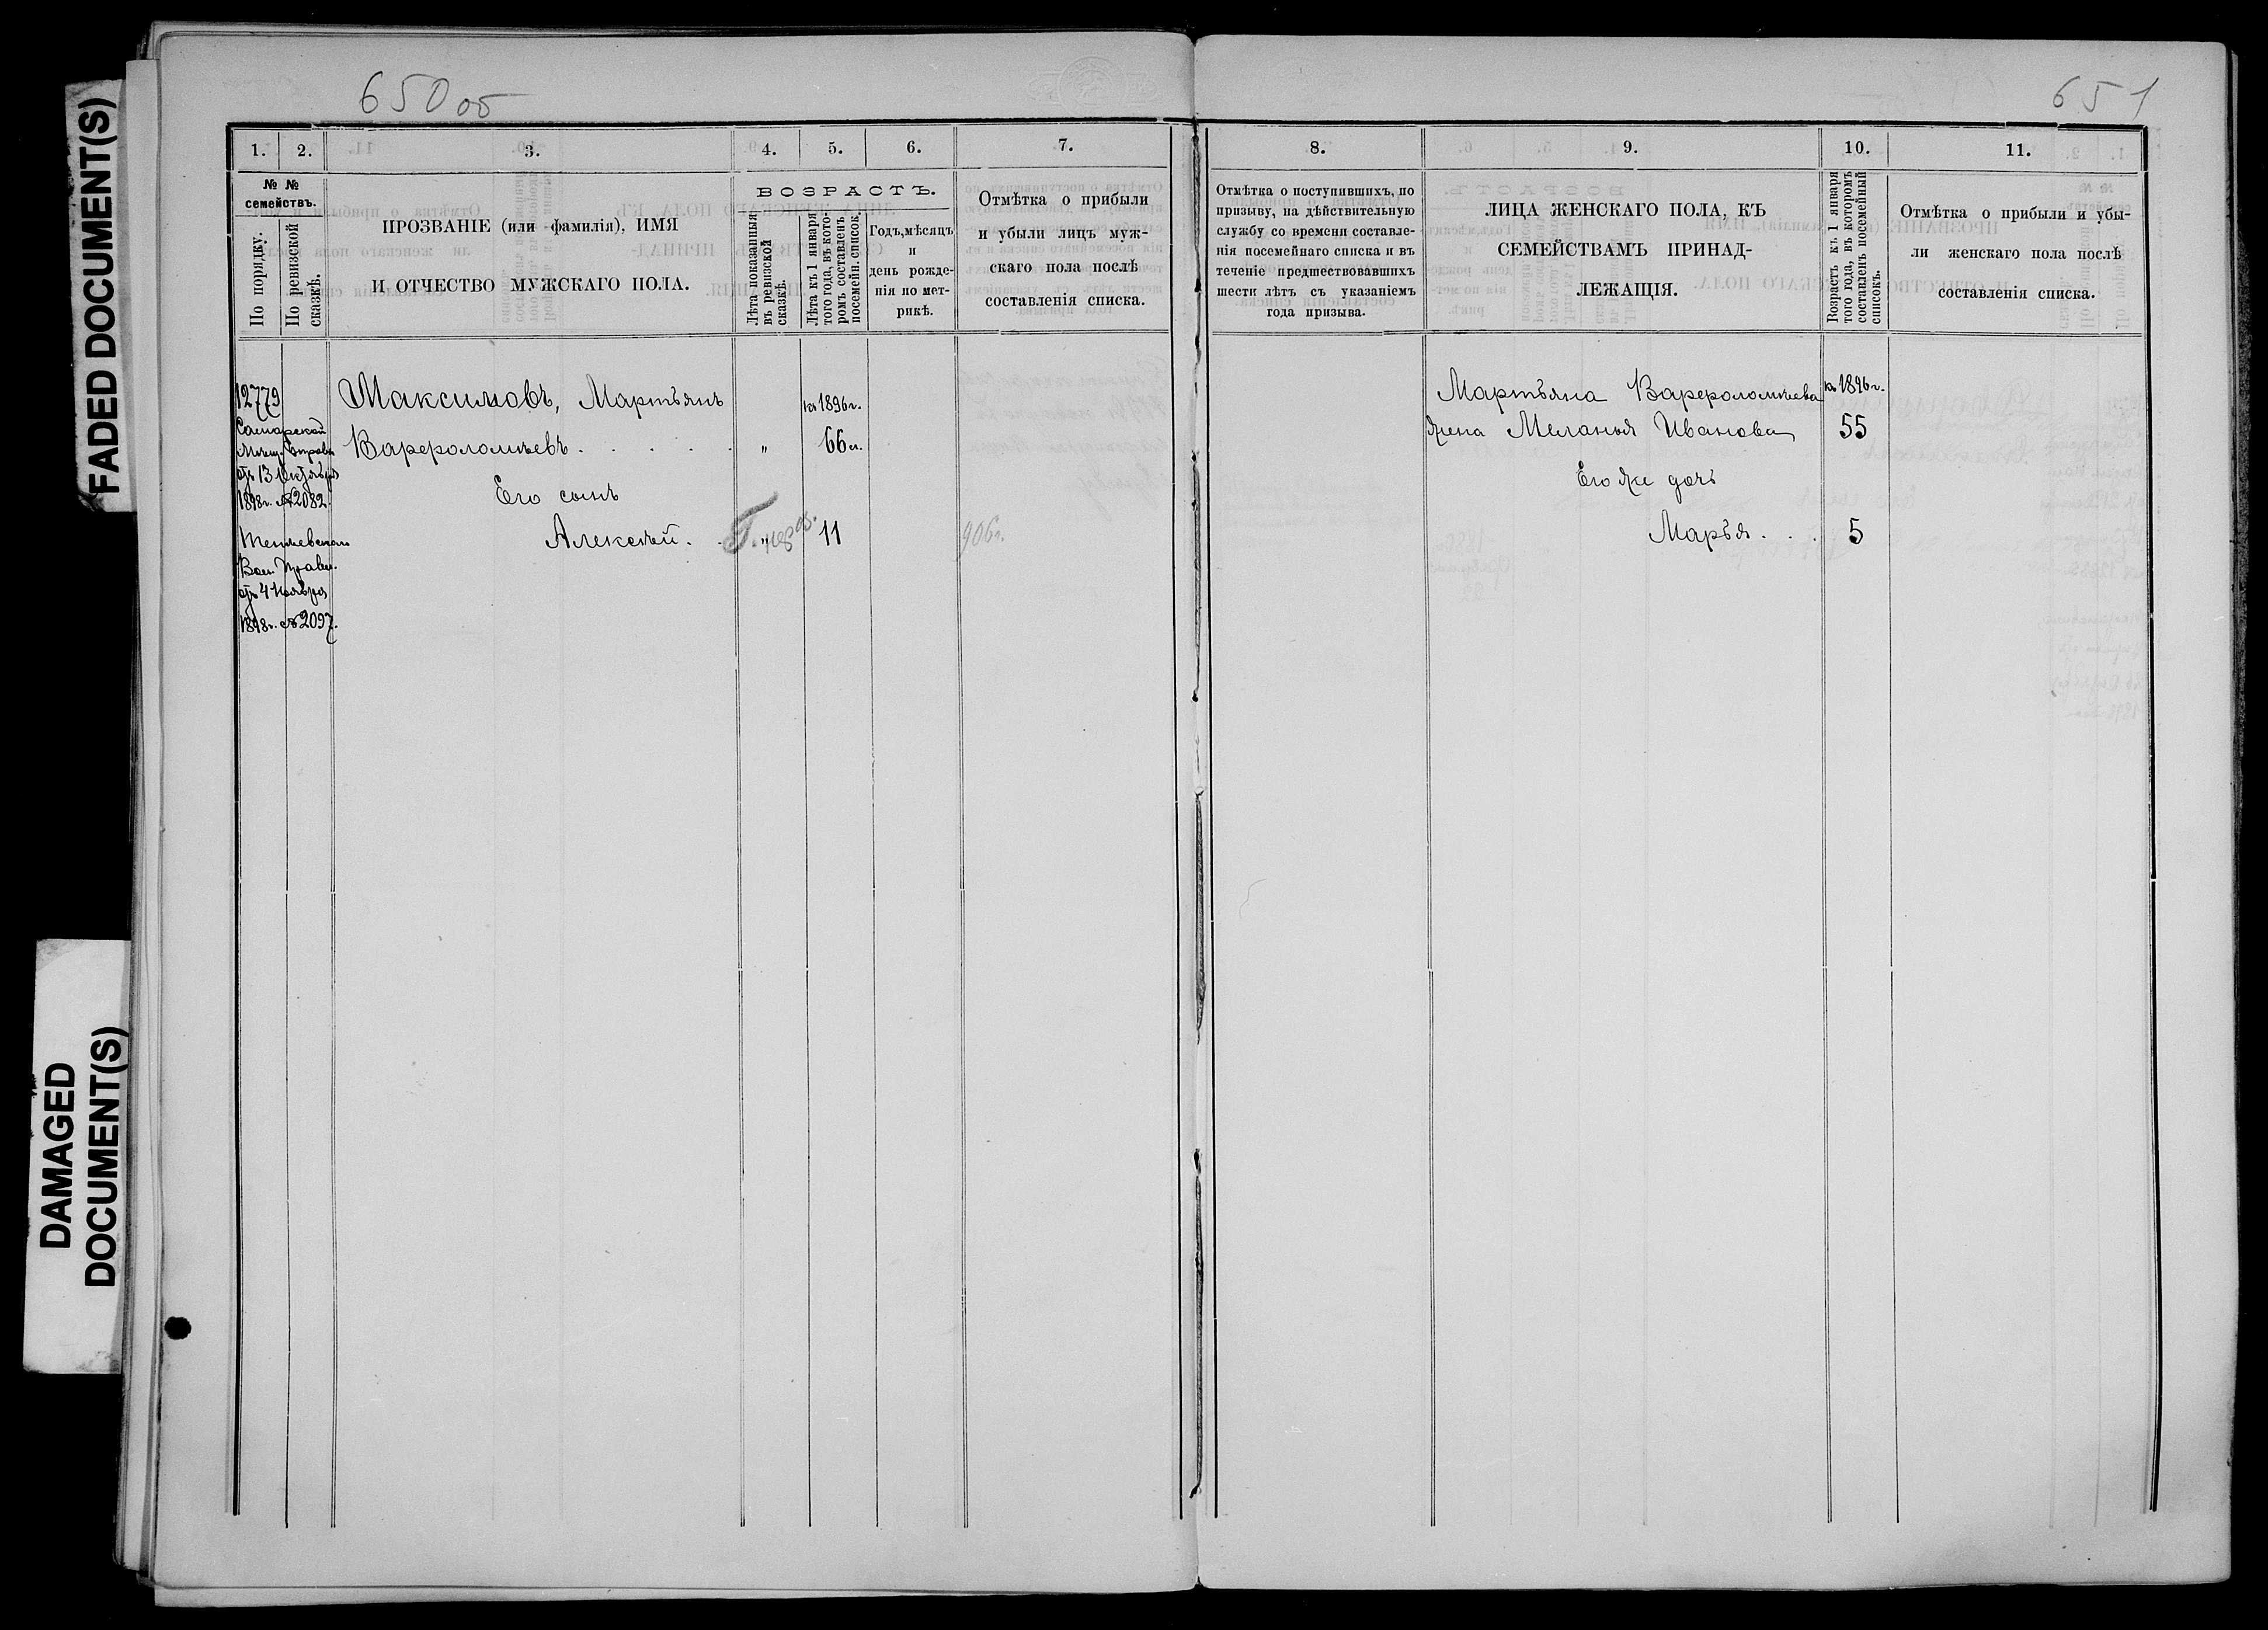 FADED DOCUMENT(S)
DAMAGED
DOCUMENT(S)
650 об
1. 2. 3. 4. 5. 6. 7.
№ №
семействъ.
По порядку.
По ревизской
сказкѣ.
ПРОЗВАНІЕ (или фамилія), ИМЯ
И ОТЧЕСТВО МУЖСКАГО ПОЛА.
ВОЗРАСТЪ.
Лѣта показанныя
въ ревизской
сказкѣ.
Лѣта къ 1 января
того года, въ кото-
ромъ составленъ
посемейн. список.
Годъ, мѣсяцъ
и
день рожде-
нія по мет-
рикѣ.
Отмѣтка о прибыли
и убыли лицъ муж-
скаго пола послѣ
составленія списка.
12779
Самарской
Мѣщ. Управы
отъ 13 Октября
1898г. №2082.
Вол. Правл.
отъ 4 Ноября
1898г. №2097.
Максимовъ, Мартьянъ
Варфоломѣевъ . . . . . „ 66 л.
къ 1896 г.
Его сынъ
Алексѣй. . „ 11
906 г.
651
8. 9. 10. 11.
Отмѣтка о поступившихъ, по
призыву, на дѣйствительную
службу со времени составле-
нія посемейнаго списка и въ
теченіе предшествовавшихъ
шести лѣтъ съ указаніемъ
года призыва.
ЛИЦА ЖЕНСКАГО ПОЛА, КЪ
СЕМЕЙСТВАМЪ ПРИНАД-
ЛЕЖАЩІЯ.
Возрастъ къ 1 января
того года, въ которомъ
составленъ посемейный
списокъ.
Отмѣтка о прибыли и убы-
ли женскаго пола послѣ
составленія списка.
Мартьяна Варфоломѣева къ 1896 г.
жена Меланья Иванова 55
Его же дочь
Марья . . . 5